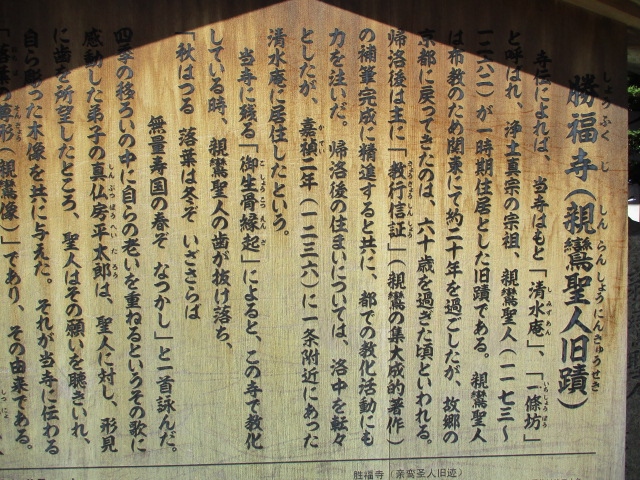 勝福寺（親鸞聖人旧蹟）
しょう ふく じ しん らん しょう にん きゅう せき
寺伝によれば、当寺はもと「清水庵」、「一條坊」
しみずあん いちじょうぼう
と呼ばれ、浄土真宗の宗祖、親鸞聖人（一一七三～
一二六二）が一時期住居とした旧蹟である。親鸞聖人
は布教のため関東にて約二十年を過ごしたが、故郷の
京都に戻ってきたのは、六十歳を過ぎた頃といわれる。
帰洛後は主に「教行信証」（親鸞の集大成的著作）
きょうぎょうしんしょう
の補筆完成に精進すると共に、都での教化活動にも
力を注いだ。帰洛後の住まいについては、洛中を転々
としたが、嘉禎二年（一二三六）に一条附近にあった
かてい
清水庵に居住したという。
当寺に残る「御生骨縁起」によると、この寺で教化
こしょうこつえんぎ
している時、親鸞聖人の歯が抜け落ち、
「秋はつる 落葉は冬ぞ いざさらは
無量寿国の春ぞ なつかし」と一首詠んだ。
四季の移ろいの中に自らの老いを重ねるというその歌に
感動した弟子の真仏房平太郎は、聖人に対し、形見
しんぶつぼうへいたろう
に歯を所望したところ、聖人はその願いを聴きいれ、
自ら彫った木像を共に与えた。それが当寺に伝わる
「落葉の尊形（親鸞像）」であり、その由来である。
そんぎょう
胜福寺（亲鸾圣人旧迹）